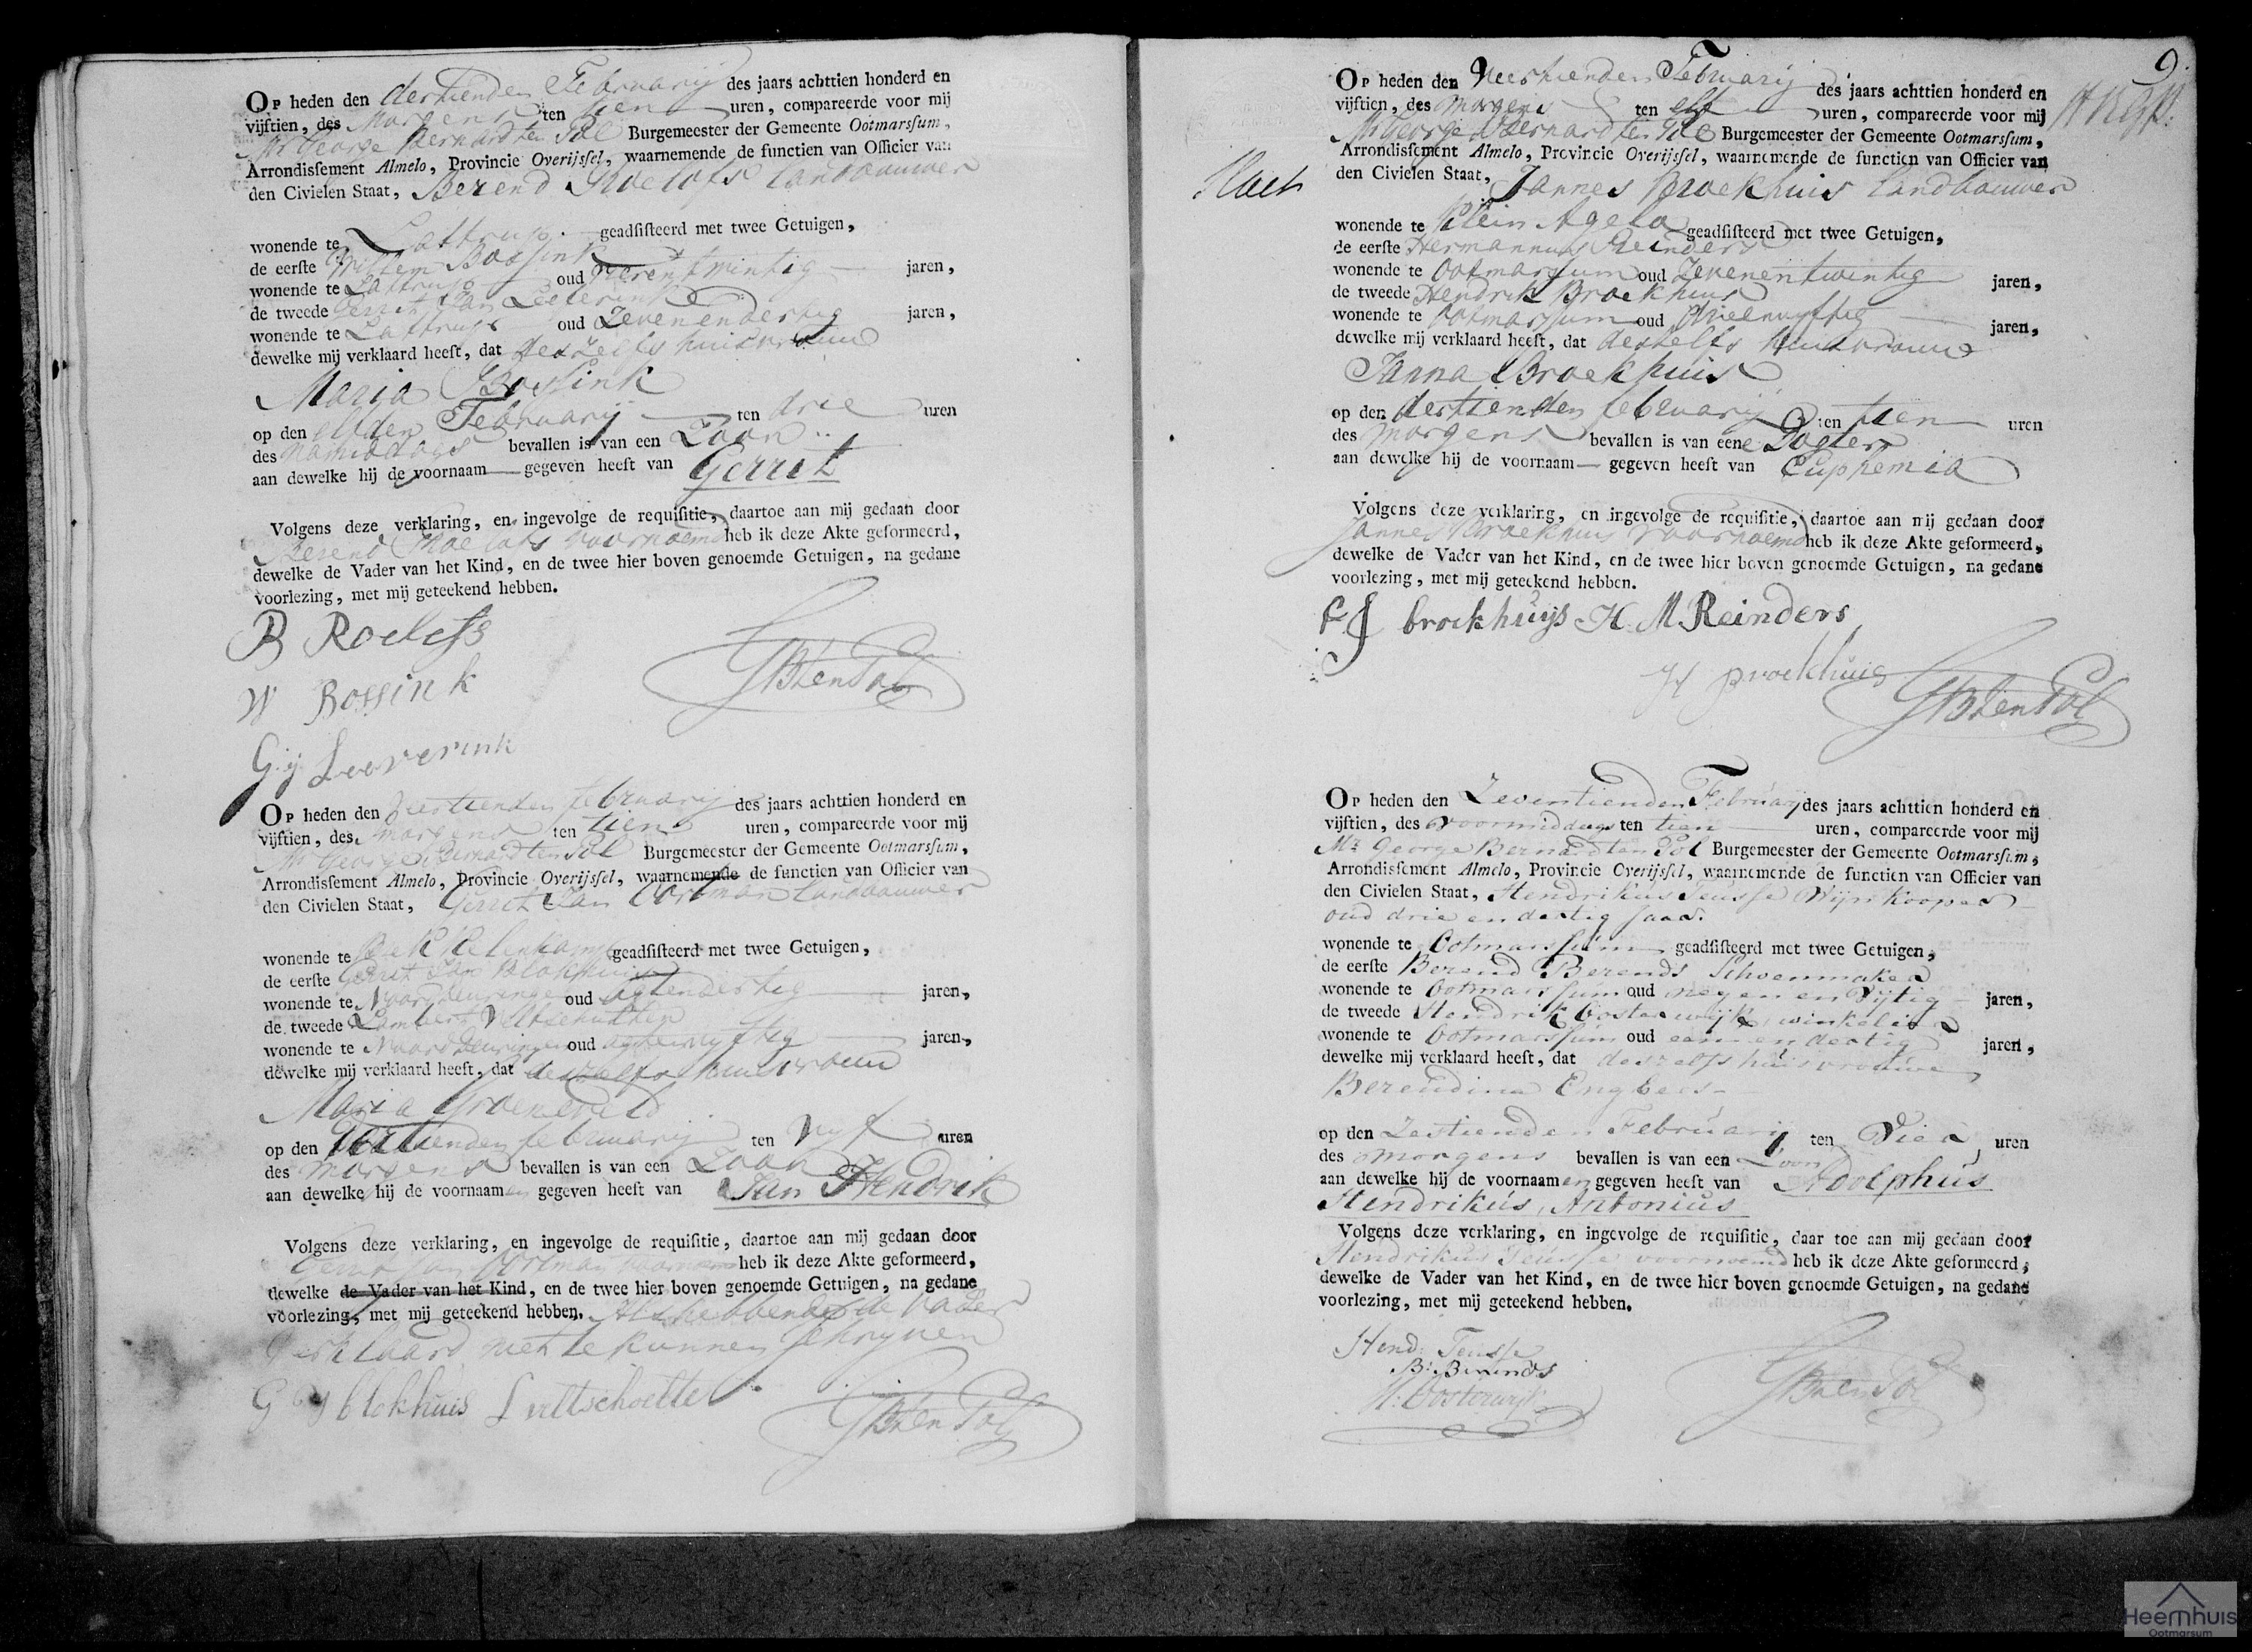 Op heden den dertienden Februarij des jaars achttien honderd en
vijftien, des Morgens ten tien uren, compareerde voor mij
Mr George Bernard ten Pol Burgemeester der Gemeente Ootmarsſum,
Arrondisſement Almelo, Provincie Overijsſel, waarnemende de functien van Officier van
den Civielen Staat, Berend Roelofs Landbouwer
wonende te Lattrup geadſiſteerd met twee Getuigen,
de eerſte Willem Bossink
wonende te Lattrup oud jaren,
de tweede Gerrit Jan Leeverink
wonende te Lattrup oud Zevenendertig jaren,
dewelke mij verklaard heeft, dat deszelfs huisvrouw
Maria Bossink
op den elfden Februarij ten drie uren
des Namiddags bevallen is van een Zoon
aan dewelke hij de voornaam gegeven heeft van Gerrit
Volgens deze verklaring, en ingevolge de requiſitie, daartoe aan mij gedaan door
Berend Roelofs voornoemd heb ik deze Akte geformeerd,
dewelke de Vader van het Kind, en de twee hier boven genoemde Getuigen, na gedane
voorlezing, met mij geteekend hebben.
B Roelofs
W Bossink
GBtenPol
G.j. Leeverink
Op heden den Viertienden februarij des jaars achttien honderd en
vijftien, des morgens ten tien uren, compareerde voor mij
Mr George Bernard ten Pol Burgemeester der Gemeente Ootmarsſum,
Arrondisſement Almelo, Provincie Overijsſel, waarnemende de functien van Officier van
den Civielen Staat, Gerrit Jan Oortman Landbouwer
wonende te Brekkelenkamp geadſiſteerd met twee Getuigen,
de eerſte Gerrit Jan Blokhuis
wonende te Noorddeuringen oud agtendertig jaren,
de tweede Lambert Veltschutten
wonende te Noorddeuringen oud jaren,
dewelke mij verklaard heeft, dat deszelfs huisvrouw
Maria Groeneveld
op den februarij ten vyf uren
des morgens bevallen is van een Zoon
aan dewelke hij de voornaamen gegeven heeft van Jan Hendrik
Volgens deze verklaring, en ingevolge de requiſitie, daartoe aan mij gedaan door
Gerrit Jan Oortman voornoemd heb ik deze Akte geformeerd,
dewelke de Vader van het Kind, en de twee hier boven genoemde Getuigen, na gedane
voorlezing, met mij geteekend hebben. hebbende de vader
verklaard niet te kunnen schryven
G J blokhuis L veltschoette GBtenPol
9.
Op heden den Veertienden Februarij des jaars achttien honderd en
vijftien, des morgens ten elf uren, compareerde voor mij
Mr George Bernard ten Pol Burgemeester der Gemeente Ootmarsſum,
Arrondisſement Almelo, Provincie Overijsſel, waarnemende de functien van Officier van
den Civielen Staat, Jannes Broekhuis Landbouwer
wonende te Klein Agelo geadſiſteerd met twee Getuigen,
de eerſte Hermannus Reinders
wonende te Ootmarsum oud Zevenentwintig jaren,
de tweede Hendrik Broekhuis
wonende te Ootmarssum oud jaren,
dewelke mij verklaard heeft, dat deszelfs huisvrouwe
Janna Broekhuis
op den dertienden februarij ten tien uren
des morgens bevallen is van eene Dogter
aan dewelke hij de voornaam gegeven heeft van Euphemia
Volgens deze verklaring, en ingevolge de requiſitie, daartoe aan mij gedaan door
Jannes Broekhuis voornoemd heb ik deze Akte geformeerd,
dewelke de Vader van het Kind, en de twee hier boven genoemde Getuigen, na gedane
voorlezing, met mij geteekend hebben.
J broekhuijs H. M. Reinders
H broekhuis GBtenPol
Op heden den Zeventienden Februarij des jaars achttien honderd en
vijftien, des voormiddags ten tien uren, compareerde voor mij
Mr George Bernard ten Pol Burgemeester der Gemeente Ootmarsſum,
Arrondisſement Almelo, Provincie Overijsſel, waarnemende de functien van Officier van
den Civielen Staat, Hendrikus Teussse Wijnkooper
oud drie en dertig jaar.
wonende te Ootmarssum geadſiſteerd met twee Getuigen,
de eerſte Berend Berends Schoenmaker
wonende te Ootmarssum oud negen en vijftig jaren,
de tweede Hendrik Oosterwijk, winkelier
wonende te Ootmarssum oud een en dertig jaren,
dewelke mij verklaard heeft, dat deszelfs huisvrouwe
Berendina Engbers
op den Zestienden Februarij ten Vier uren
des morgens bevallen is van een Zoon
aan dewelke hij de voornaamen gegeven heeft van Adolphus
Hendrikus, Antonius
Volgens deze verklaring, en ingevolge de requiſitie, daar toe aan mij gedaan door
Hendrikus Teusse voornoemd heb ik deze Akte geformeerd,
dewelke de Vader van het Kind, en de twee hier boven genoemde Getuigen, na gedane
voorlezing, met mij geteekend hebben.
Hend: Teusse
B: Berends
H: Oosterwijk GBtenPol
Heemhuis
Ootmarsum